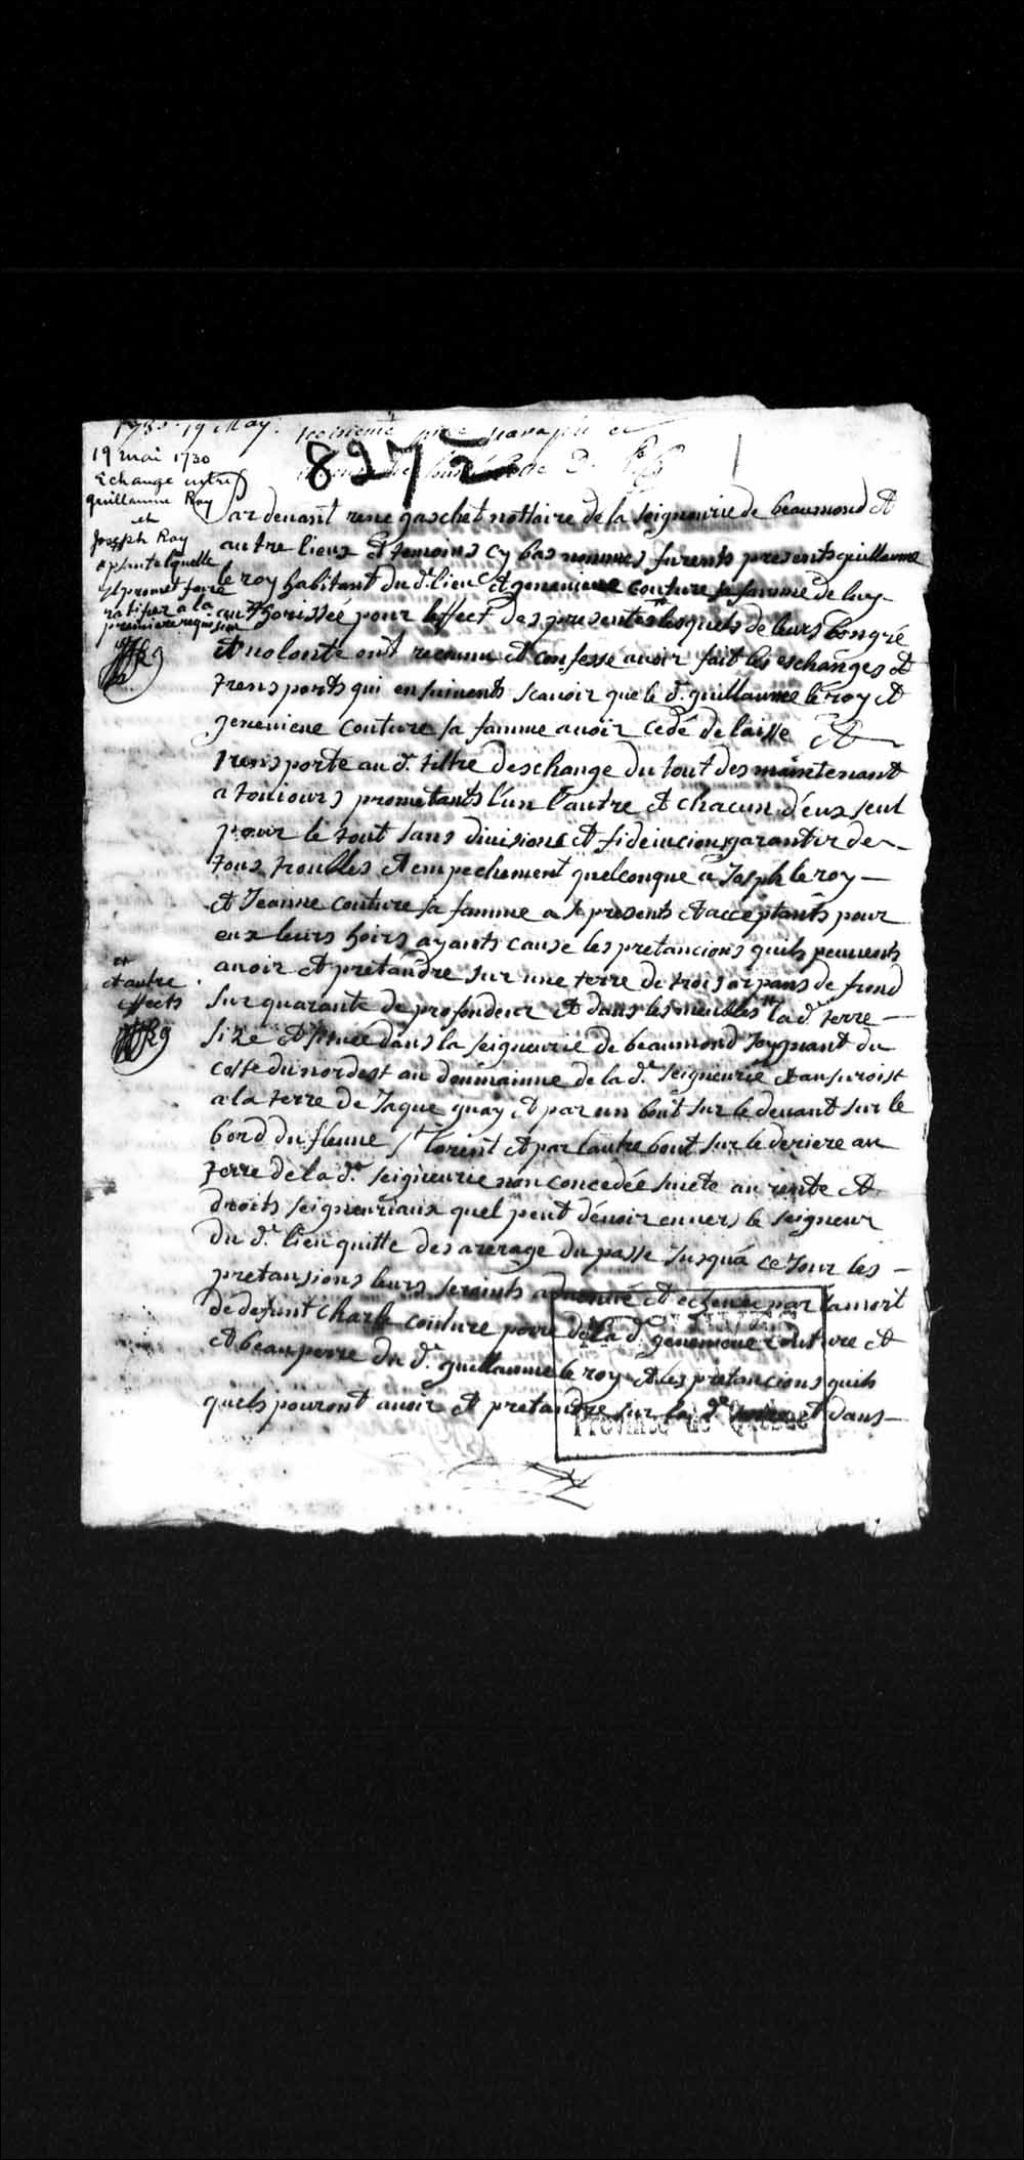 1730. 19 May.
19 mai 1730
Echange entre
guillaume Roy
et
Joseph Roy
8272
Par devant rene gaschet nottaire de la seigneurie de beaumond et
autre lieux et temoins cy bas nommes furents presents guillaume
le roy habitant du d. lieu et genevieve couture sa famme de luy
authorissée pour leffect des presentes lesquels de leurs bongré
et volonte onts reconnu et confessé avoir fait les eschanges et
trensports qui ensuivents scavoir que le d. guillaume le roy et
genevieve couture sa famme avoir cedé delaisse et
trensporte au d. tiltre deschange du tout des maintenant
a toujours prometants l'un l'autre et chacun d'eux seul
pour le tout sans division et fideiucion garantir de
tous troubles et empechement quelconque a Joseph le roy
et Jeanne couture sa famme a ce presents et acceptants pour
eux leurs hoirs ayants cause les pretancions quils peuvents
avoir et pretandre sur une terre de trois arpans de frond
sur quarante de profondeur et dans les meubles la d. terre
size et situee dans la seigneurie de beaumond joygnant du
coste du nordest au doumainne de la d. seigneurie et au suroist
a la terre de Jaque guay et par un bout sur le devant sur le
bord du fleuve st lorent et par lautre bout sur le deriere au
terre de la d. seigneurie non concedée suiete au rente et
droits seigneuriaux quel peut devoir envers le seigneur
du d. lieu quitte des arerage du passe jusqua ce jour les
pretansions leurs seroints et echeue par la mort
de defunt Charle couture perre de la d. genevieve couture et
et beau perre du d. guillaume le roy et les pretancions quils
quels pouront avoir et pretandre sur la d. terre et dans
apsente lquelle
il promet faire
ratifier a la
premiere requisision
et autre
effects
Province de Québec